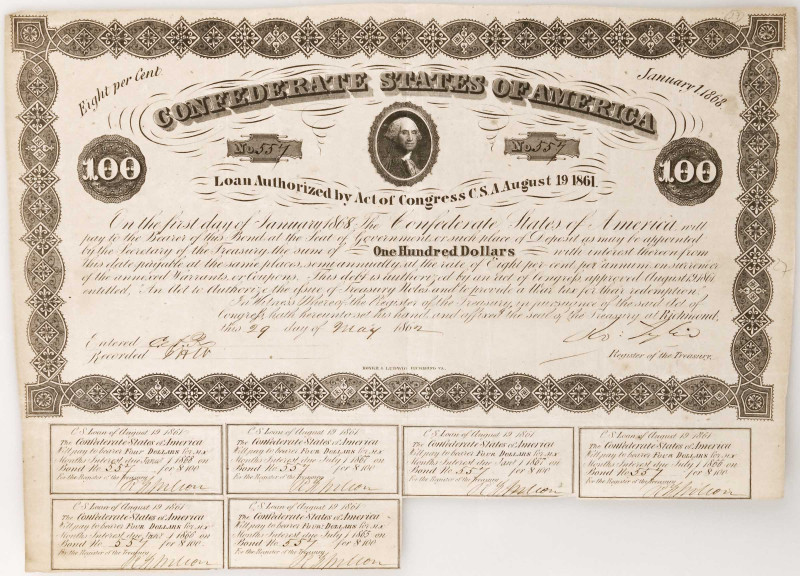 Eight per Cent
January 1 1868.
CONFEDERATE STATES OF AMERICA
No. 557
No. 557
100
100
Loan Authorized by Act of Congress C.S.A August 19 1861.
On the first day of January 1868, The Confederate States of America, will
pay to the Bearer of this Bond, at the Seat of Government, or such place of Deposit as may be appointed
by the Secretary of the Treasury, the sum of One Hundred Dollars with interest thereon from
this date, payable at the same place, semi annually at the rate of Eight per cent per annum on surrender
of the annexed Warrants, or Coupons. This debt is authorized by an Act of Congress approved August 19 1861
entitled, "An Act to Authorize the Issue of Treasury Notes, and to provide a War tax for their redemption."
In Witness Whereof, the Register of the Treasury, in pursuance of the said Act of
Congress, hath hereunto set his hand, and affixed the seal of the Treasury at Richmond,
this 29 day of May 1862
Entered
Recorded
Ro: Tyler
Register of the Treasury.
HOYER & LUDWIG, RICHMOND, VA.
C.S Loan of August 19 1861
The Confederate States of America
Will pay to bearer FOUR DOLLARS for six
Months Interest due Jany 1 1868 on
Bond No 557 for $100
For the Register of the Treasury
C.S Loan of August 19 1861
The Confederate States of America
Will pay to bearer FOUR DOLLARS for six
Months Interest due July 1 1867 on
Bond No 557 for $100
For the Register of the Treasury
C.S Loan of August 19 1861
The Confederate States of America
Will pay to bearer FOUR DOLLARS for six
Months Interest due Jany 1 1867 on
Bond No 557 for $100
For the Register of the Treasury
C.S Loan of August 19 1861
The Confederate States of America
Will pay to bearer FOUR DOLLARS for six
Months Interest due July 1 1866 on
Bond No 557 for $100
For the Register of the Treasury
C.S Loan of August 19 1861
The Confederate States of America
Will pay to bearer FOUR DOLLARS for six
Months Interest due Jany 1 1866 on
Bond No 557 for $100
For the Register of the Treasury
C.S Loan of August 19 1861
The Confederate States of America
Will pay to bearer FOUR DOLLARS for six
Months Interest due July 1 1865 on
Bond No 557 for $100
For the Register of the Treasury